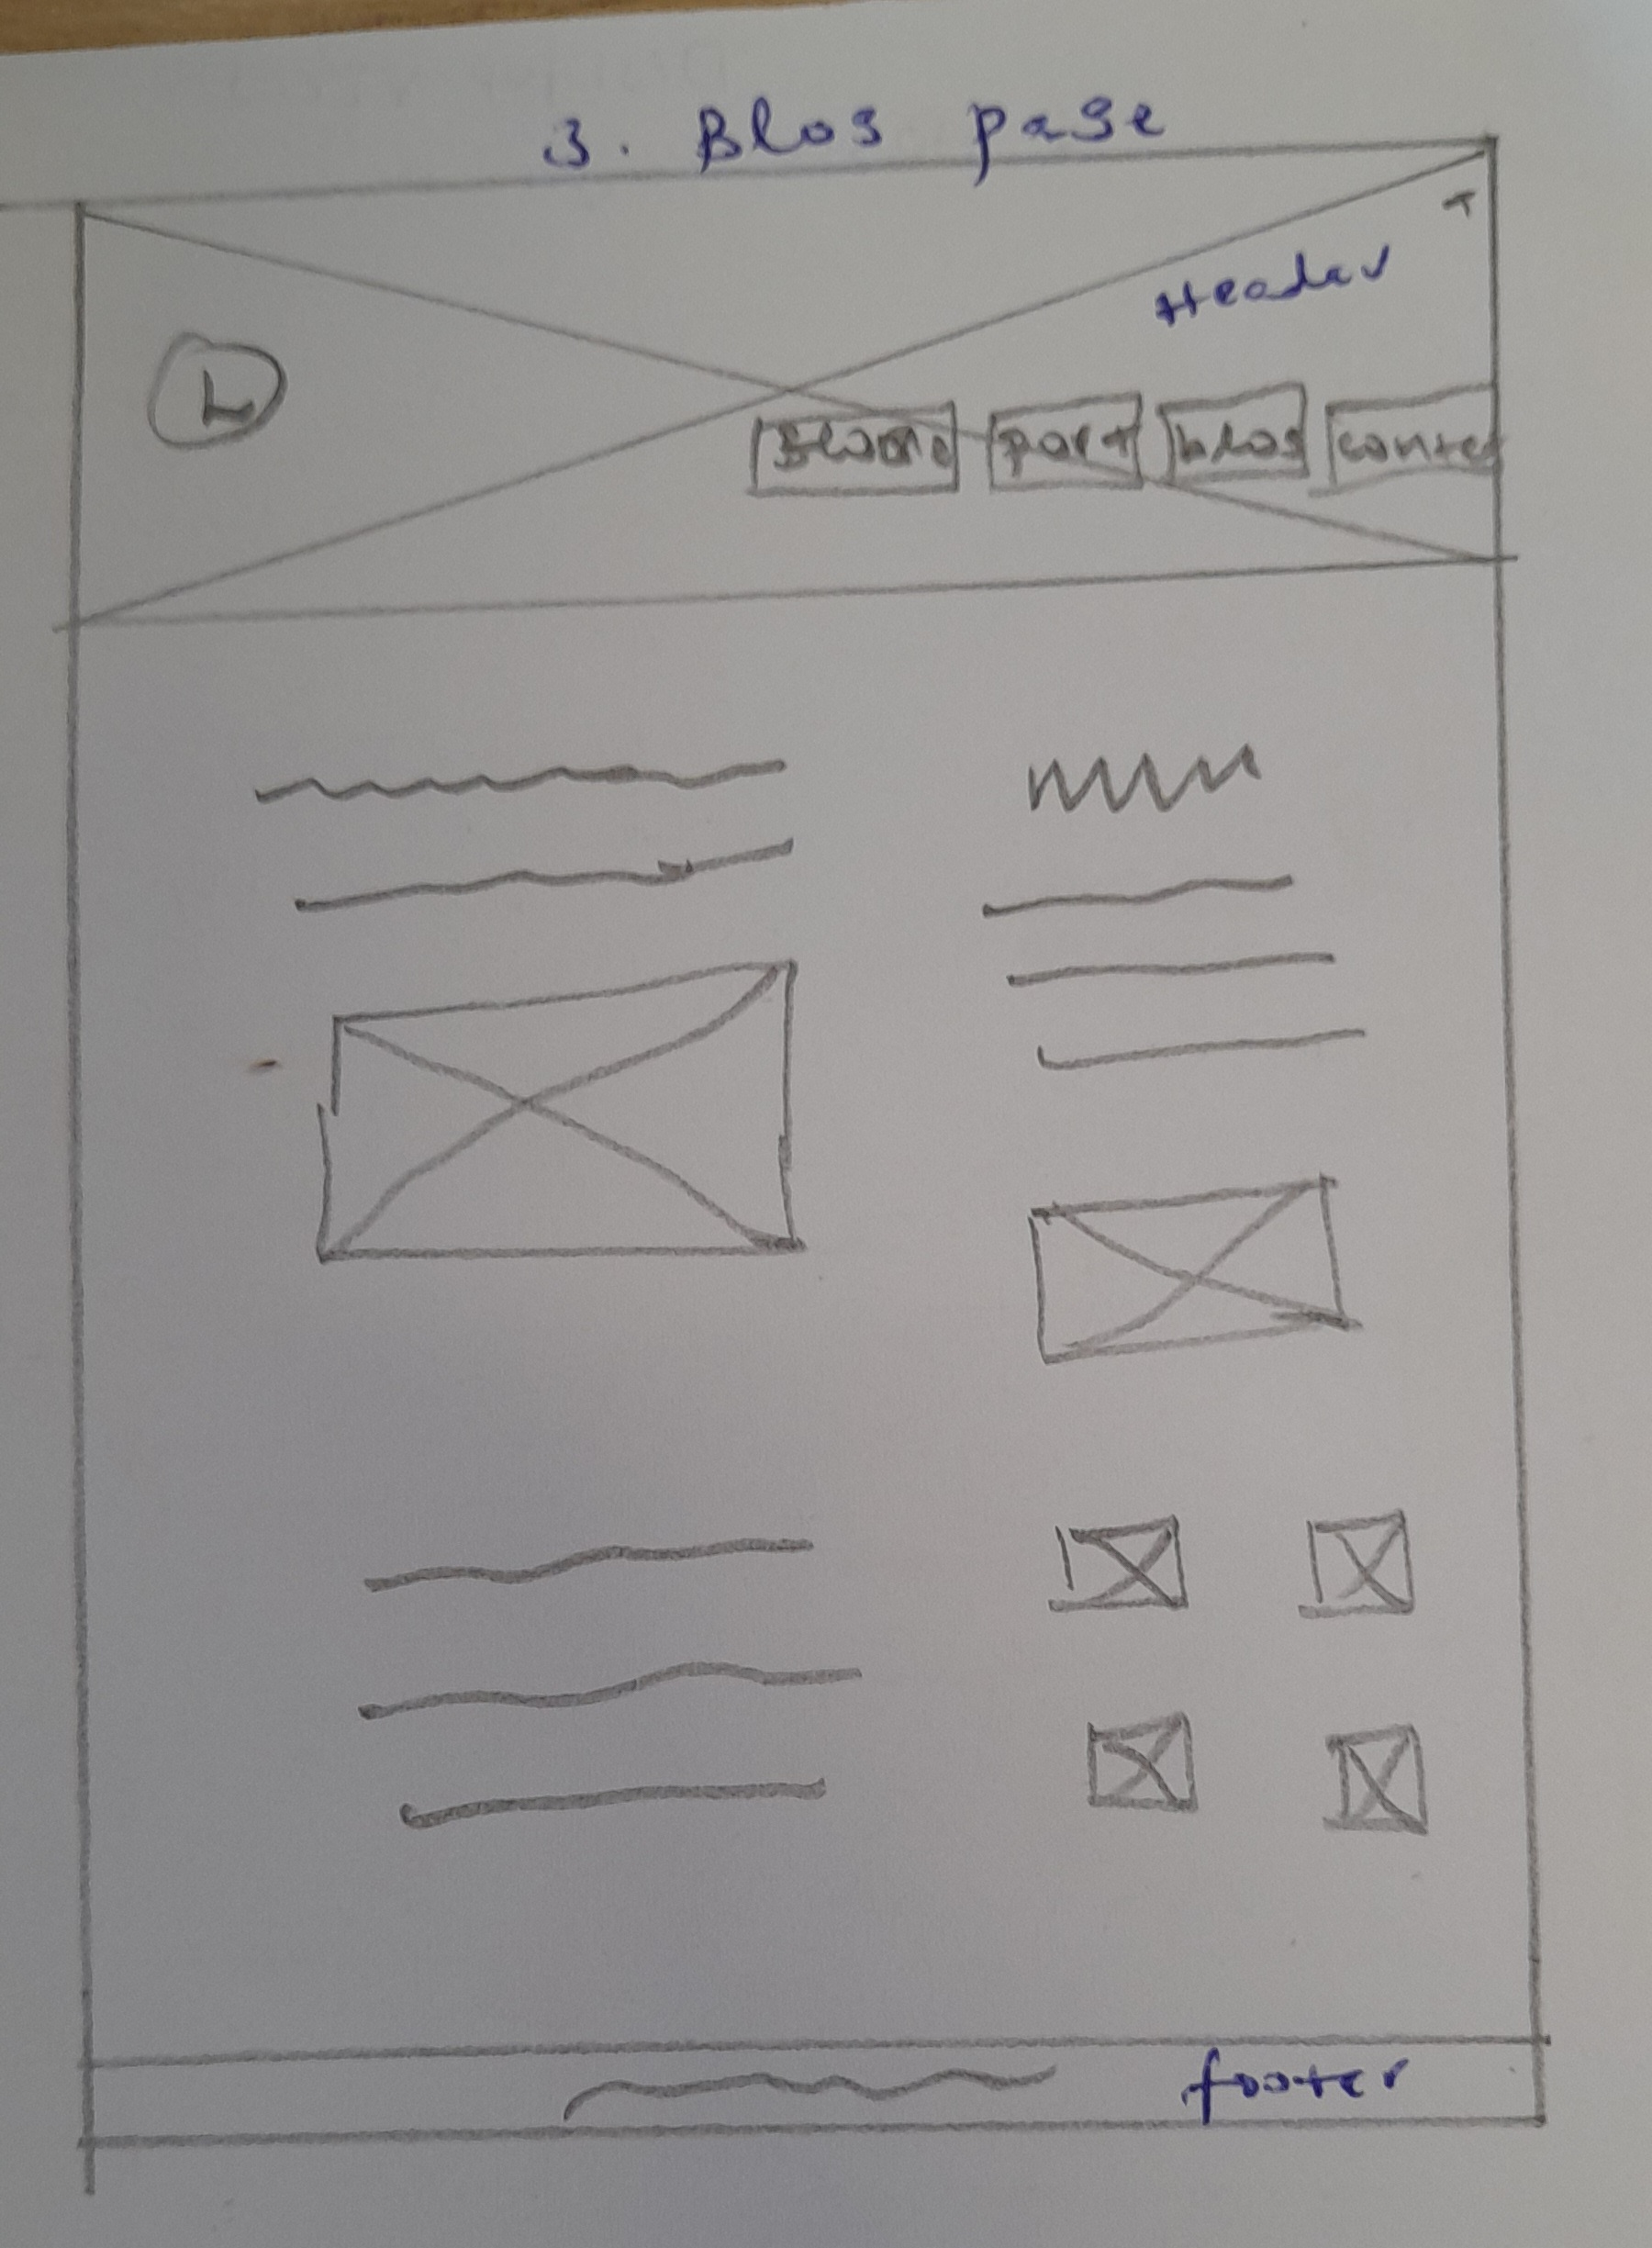 3. Blog page
Header
L
Home port blog contac
footer